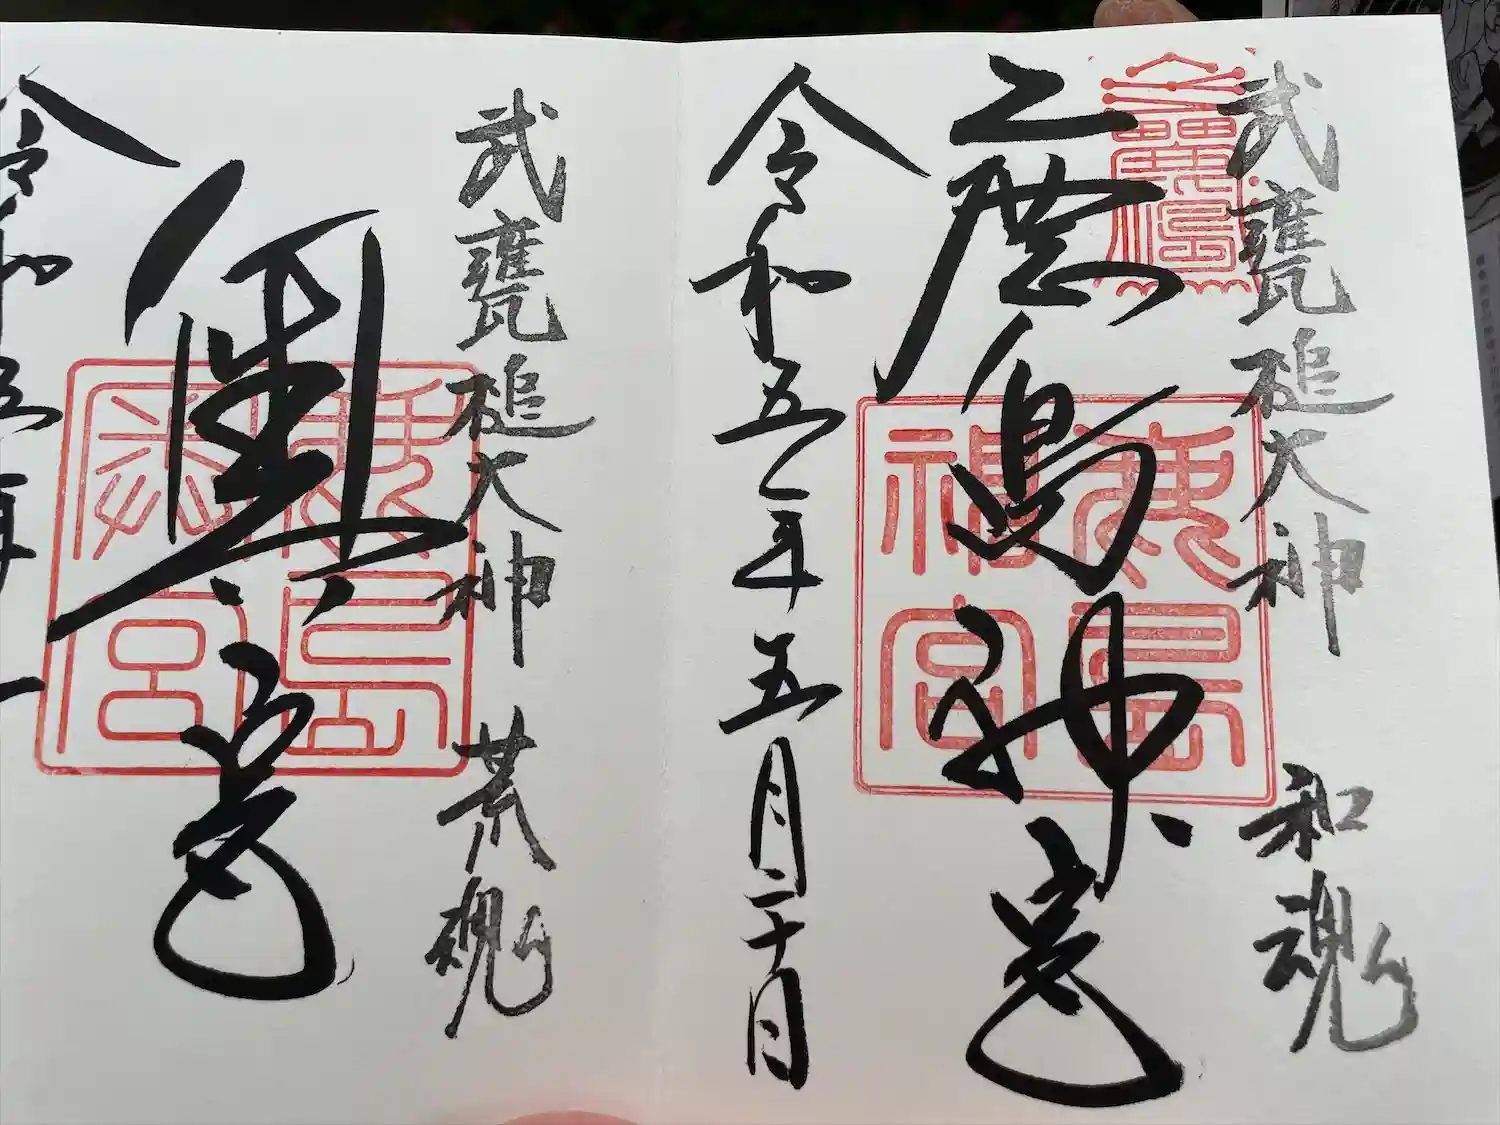 武甕槌大神 和魂
鹿島神宮
鹿島神宮
令和五年五月二十日
武甕槌大神 荒魂
奥宮
鹿島奥宮
令和五年